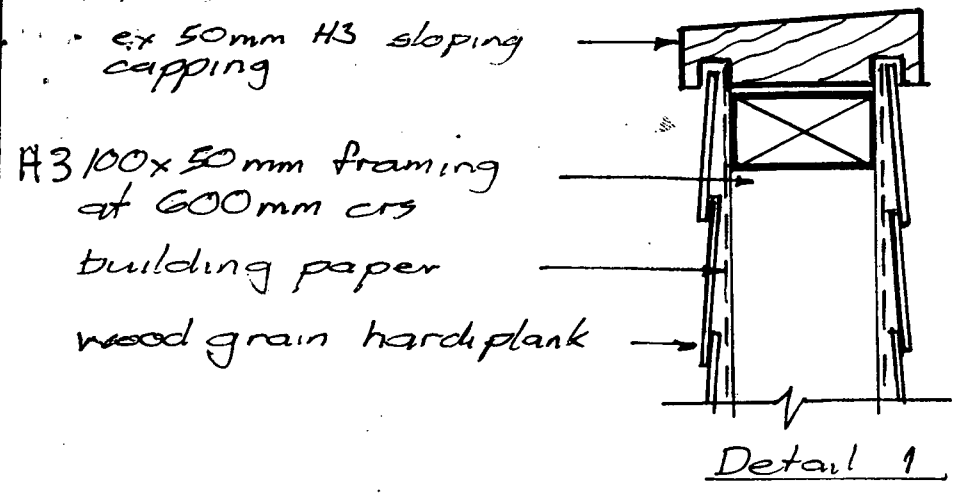 ex 50mm H3 sloping
capping
H3 100x50mm framing
at 600mm crs
building paper
wood grain hardiplank
Detail 1